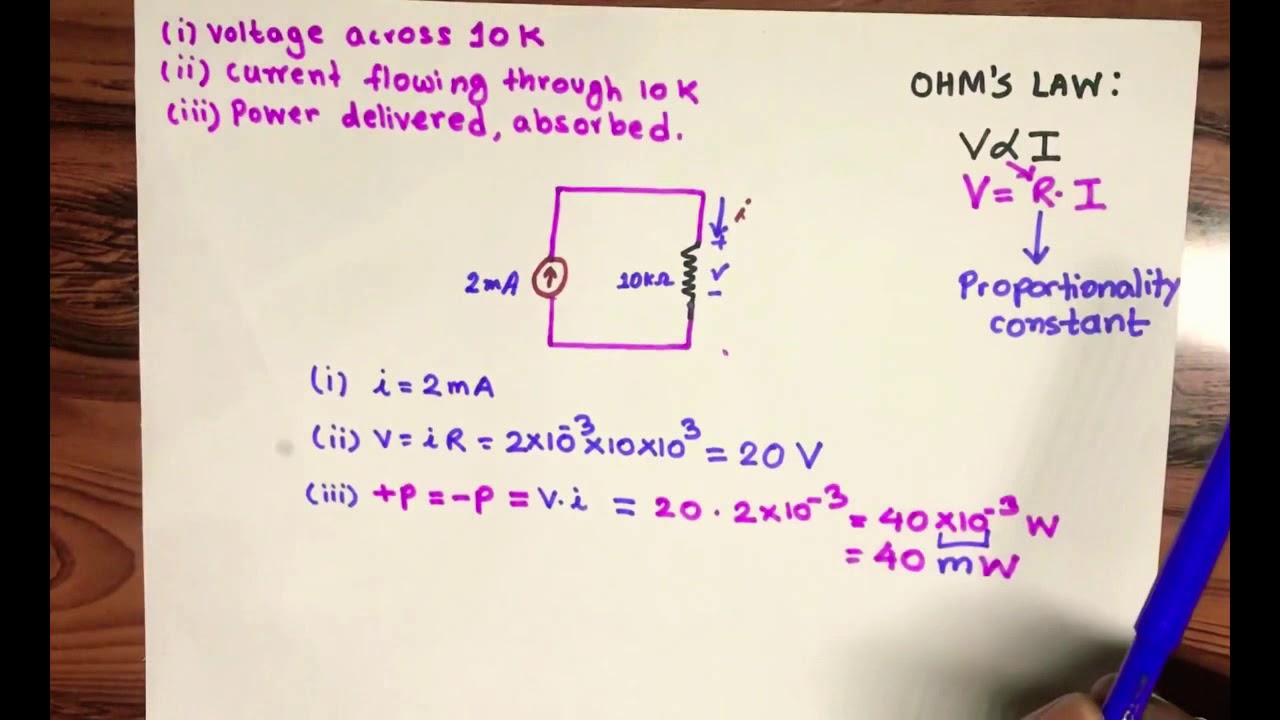 (i) Voltage across 10K
(ii) Current flowing through 10K
(iii) Power delivered, absorbed.
OHM'S LAW:
V∝I
V= R·I
Proportionality
constant
i
+
2mA
10KΩ
V
-
(i) i = 2mA
(ii) V = iR = 2×10⁻³×10×10³ = 20 V
(iii) +P = -P = V·i = 20 · 2×10⁻³ = 40×10⁻³ W
= 40 mW